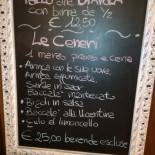 POLLO alla DIAVOLA
con birra da ½
€ 12,50
Le Cene
1 menù pranzo e cena
Aringa con le sue uova
Aringa affumicata
Sarde in saor
Baccalà mantecato
Bigoli in salsa
Baccalà alla vicentina
Gelato al limoncello
€ 25,00 bevande escluse